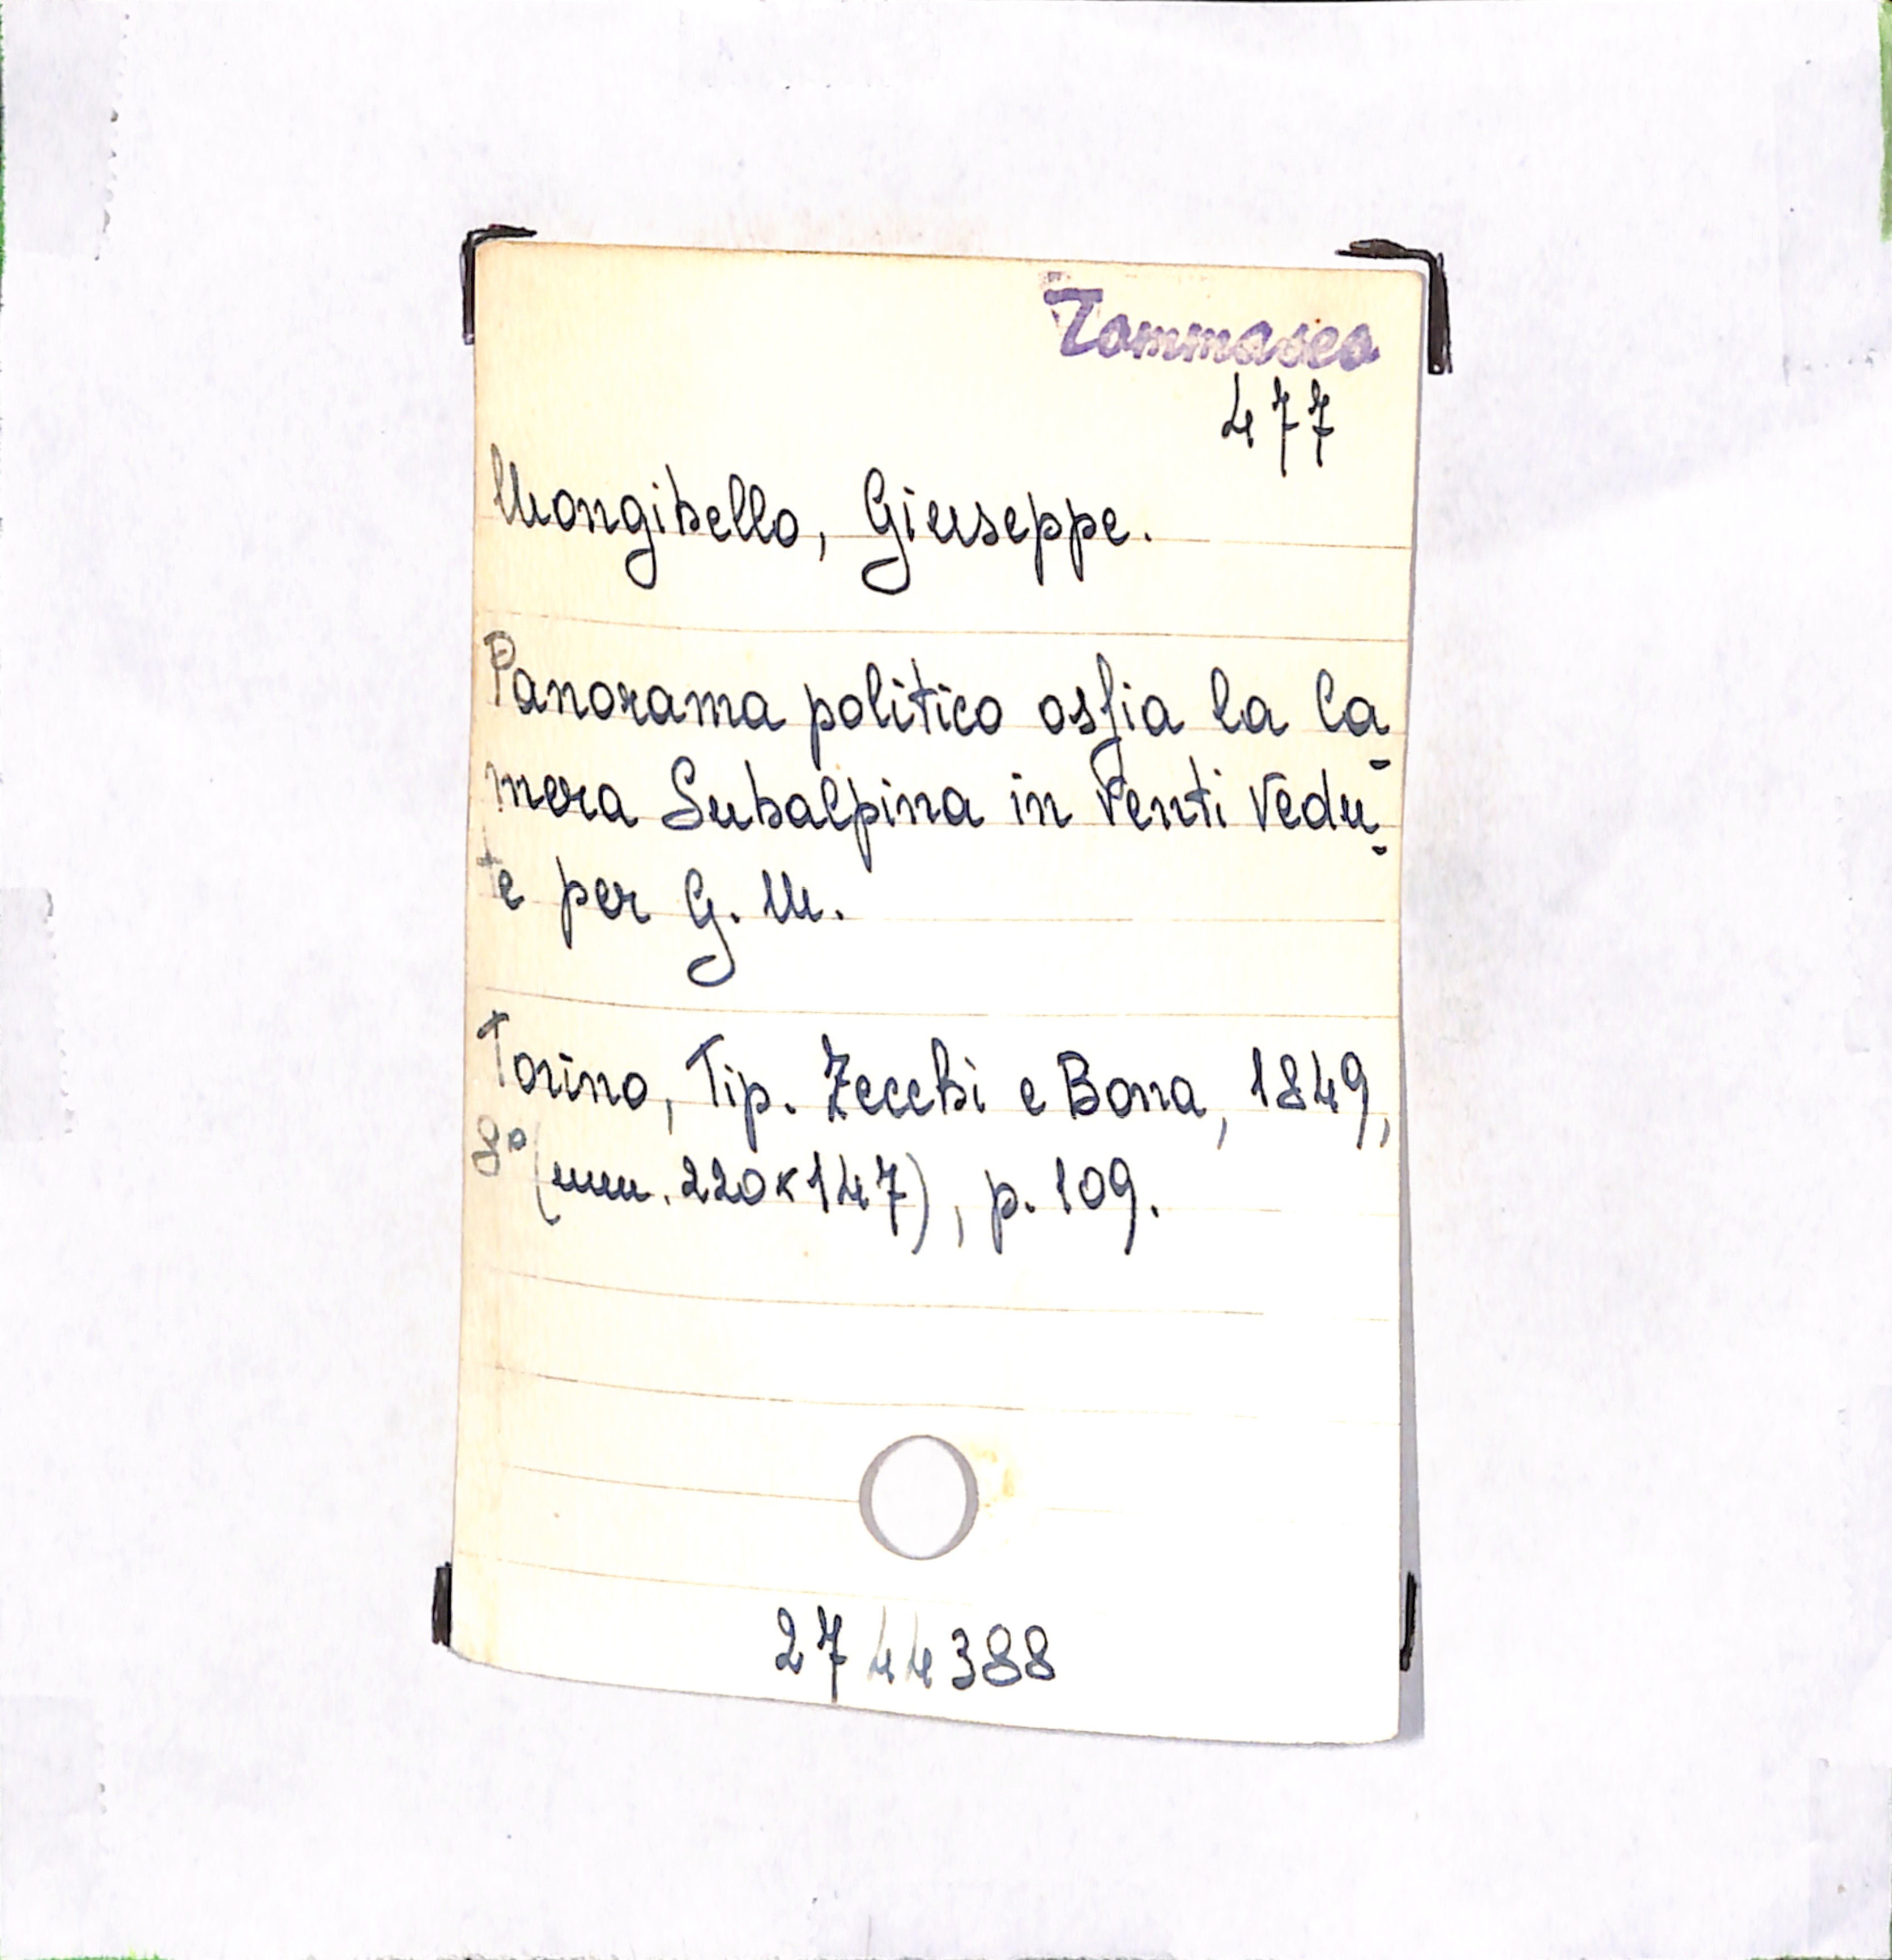 Tommaseo
477
Mongibello, Giuseppe.
Panorama politico ossia la Ca-
mera Subalpina in Venti Vedu-
te per G. M.
Torino, Tip. Zecchi e Bona, 1849,
8° (mm. 220x147), p. 109.
2744388